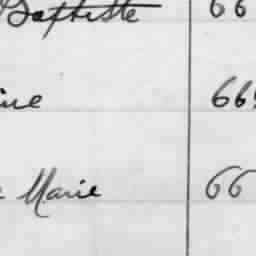 Baptiste 66
ine 669
e Marie 66